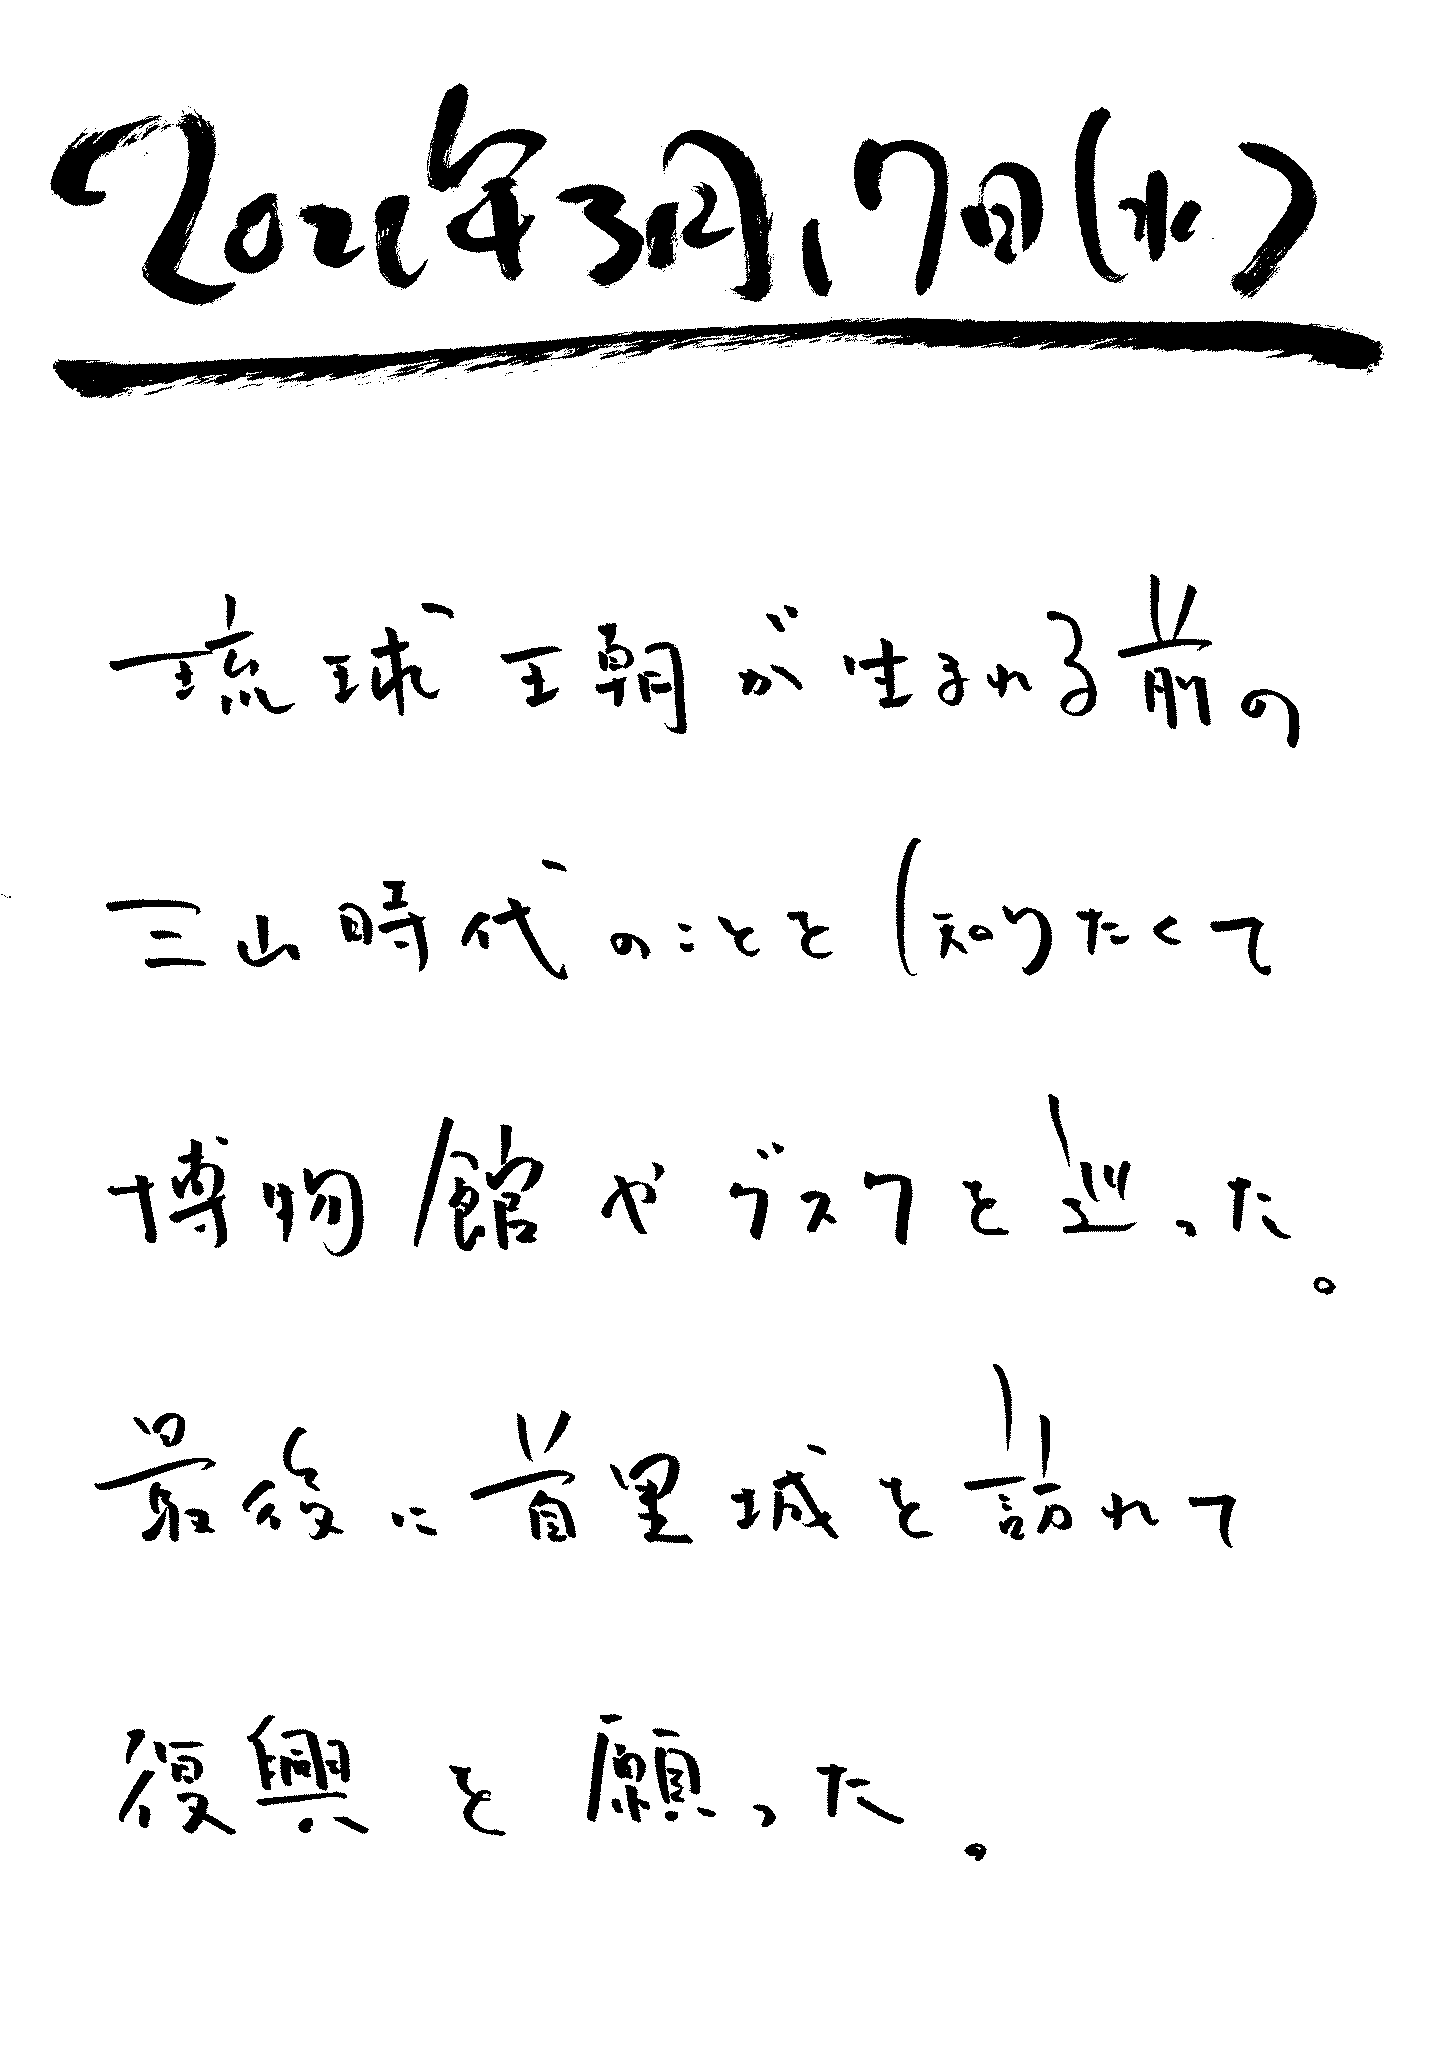 2021年3月17日(水)
琉球王朝が生まれる前の
三山時代のことを知りたくて
博物館やグスクを巡った。
最後に首里城を訪れて
復興を願った。